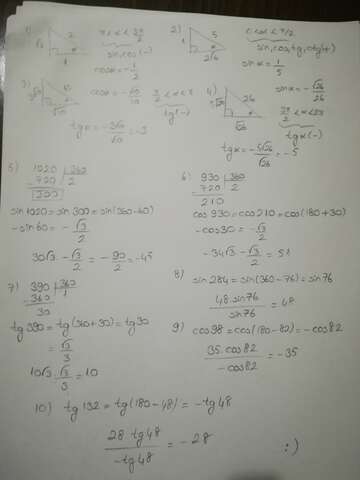 1) 2 π<α<3π/2
√3 1 sin, cos (-)
cosα = -1/2
2) 5 0<α<π/2
1 2√6 sin, cos, tg, ctg(+)
sinα = 1/5
3) cosα = -√10/10 π/2<α<π
3√10 10 √10 tg(-)
tgα = -3√10/√10 = -3
4) 26 sinα = -√26/26
√26 3π/2<α<2π
tgα(-)
tgα = -5√26/√26 = -5
5) 1020 | 360
- 720 | 2
300
sin1020 = sin300 = sin(360-60)
-sin60 = -√3/2
30√3 · -√3/2 = -90/2 = -45
6) 930 | 360
720 | 2
210
cos930 = cos210 = cos(180+30)
-cos30 = -√3/2
-34√3 · -√3/2 = 51
7) 390 | 360
360 | 1
30
tg390 = tg(360+30) = tg30
= √3/3
10√3 · √3/3 = 10
8) sin284 = sin(360-76) = sin76
48·sin76/sin76 = 48
9) cos98 = cos(180-82) = -cos82
35·cos82/-cos82 = -35
10) tg132 = tg(180-48) = -tg48
28 tg48/-tg48 = -28 :)